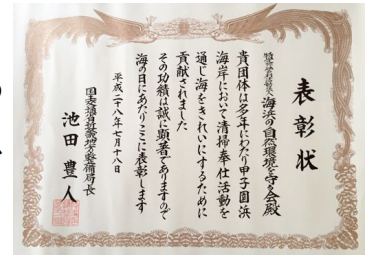 表彰状
特定非営利活動法人 海浜の自然環境を守る会殿
貴団体は多年にわたり甲子園浜
海岸において清掃奉仕活動を
通じ海をきれいにするために
貢献されました
その功績は誠に顕著でありますので
海の日にあたりここに表彰します
平成二十八年七月十八日
国土交通省近畿地方整備局長
池田豊人